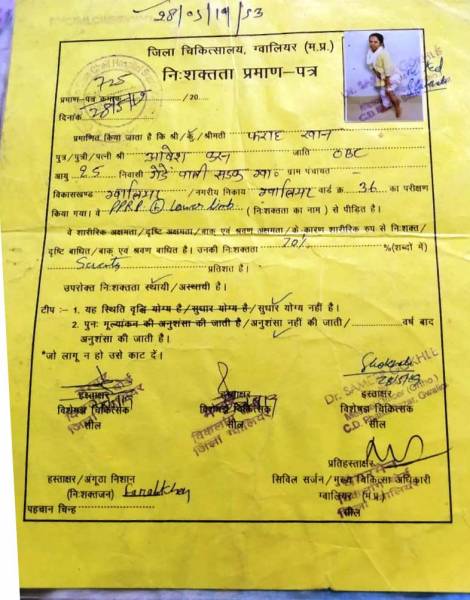 28/05/19/53
जिला चिकित्सालय, ग्वालियर (म.प्र.)
निःशक्तता प्रमाण–पत्र
725
प्रमाण–पत्र क्रमांक /20
दिनांक 28/5/19
प्रमाणित किया जाता है कि श्री/कु/श्रीमती फराह खान
पुत्र/पुत्री/पत्नी श्री जाति OBC
आयु 25 निवासी गेंडे वाली सड़क ग्राम पंचायत
विकासखण्ड ग्वालियर /नगरीय निकाय ग्वालियर वार्ड क्र. 36 का परीक्षण
किया गया। वे PPRP Lower limb (निःशक्तता का नाम) से पीड़ित है।
वे शारीरिक अक्षमता/दृष्टि अक्षमता/वाक् एवं श्रवण अक्षमता के कारण शारीरिक रुप से निःशक्त/
दृष्टि बाधित/वाक् एवं श्रवण बाधित है। उनकी निःशक्तता 70% %(शब्दों में)
प्रतिशत है।
उपरोक्त निःशक्तता स्थायी/अस्थायी है।
टीप :- 1. यह स्थिति वृद्धि योग्य है/सुधार योग्य है/सुधार योग्य नहीं है।
2. पुनः मूल्यांकन की अनुशंसा की जाती है/अनुशंसा नहीं की जाती/ वर्ष बाद
अनुशंसा की जाती है।
*जो लागू न हो उसे काट दें।
हस्ताक्षर हस्ताक्षर हस्ताक्षर
विशेषज्ञ चिकित्सक विशेषज्ञ चिकित्सक विशेषज्ञ चिकित्सक
सील सील सील
प्रतिहस्ताक्षर
हस्ताक्षर/अंगूठा निशान सिविल सर्जन/मुख्य चिकित्सा अधिकारी
(निःशक्तजन) ग्वालियर (म.प्र.)
पहचान चिन्ह सील